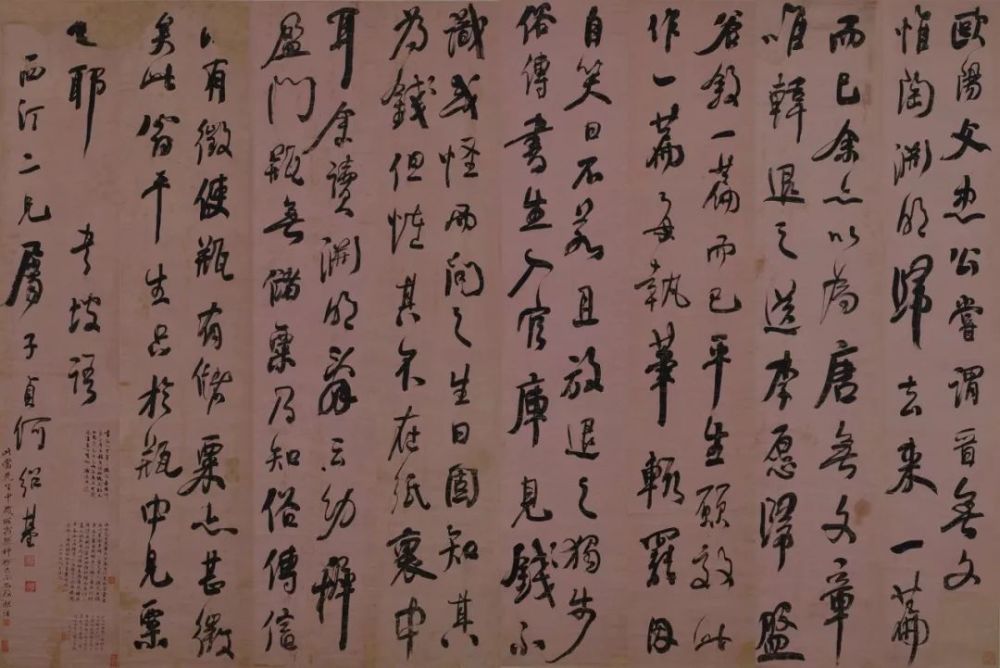 歐陽文忠公嘗謂晉無文
惟陶淵明歸去來一篇
而已余亦以為唐無文章
唯韓退之送李愿歸盤
谷敘一篇而已平生願效此
作一篇每執筆輒罷因
自笑曰不若且放退之獨步
俗傳書生入官庫見錢不
識或怪而問之生曰固知其
為錢但怪其不在紙裹中
耳余讀淵明辭云幼稚
盈門瓶無儲粟乃知俗傳信
有徵使瓶有儲粟亦甚微
矣此翁平生只於瓶中見粟
也耶 書坡語
西汀二兄屬 子貞何紹基